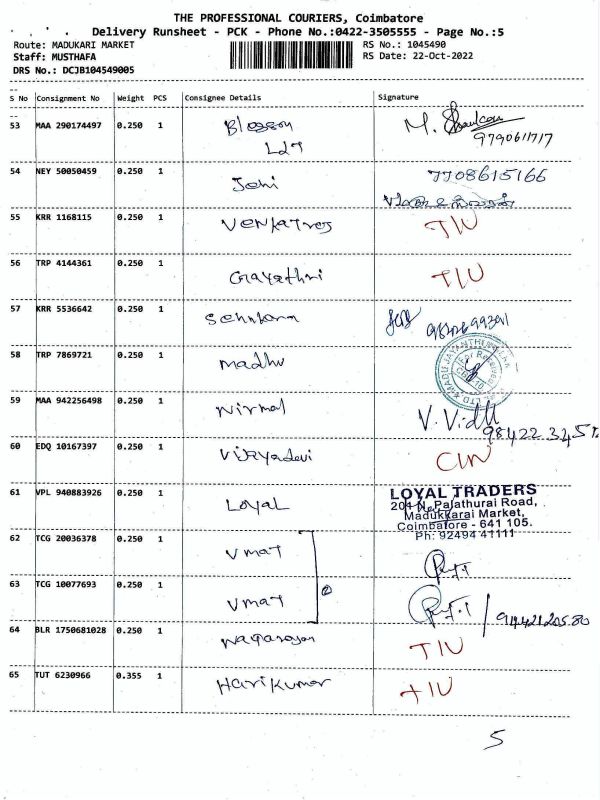 THE PROFESSIONAL COURIERS, Coimbatore
Delivery Runsheet - PCK - Phone No.:0422-3505555 - Page No.:5
Route: MADUKARI MARKET RS No.: 1045490
Staff: MUSTHAFA RS Date: 22-Oct-2022
DRS No.: DCJB104549005
S No Consignment No Weight PCS Consignee Details Signature
53 MAA 290174497 0.250 1 Blossom
Ldt 9790611717
54 NEY 50050459 0.250 1 Johi 7708615166
55 KRR 1168115 0.250 1 Venkatres TIU
56 TRP 4144361 0.250 1 Gayathri TIU
57 KRR 5536642 0.250 1
58 TRP 7869721 0.250 1 Madhu
59 MAA 942256498 0.250 1 Nirmal V. Vidh
60 EDQ 10167397 0.250 1 Vijayadevi CIN
61 VPL 940883926 0.250 1 Loyal LOYAL TRADERS
Palathurai Road,
Madukkarai Market,
Coimbatore - 641 105.
Ph: 92494 41111
62 TCG 20036378 0.250 1 Vmat
63 TCG 10077693 0.250 1 Vmat
64 BLR 1750681028 0.250 1 TIU
65 TUT 6230966 0.355 1 Harikumar TIU
5